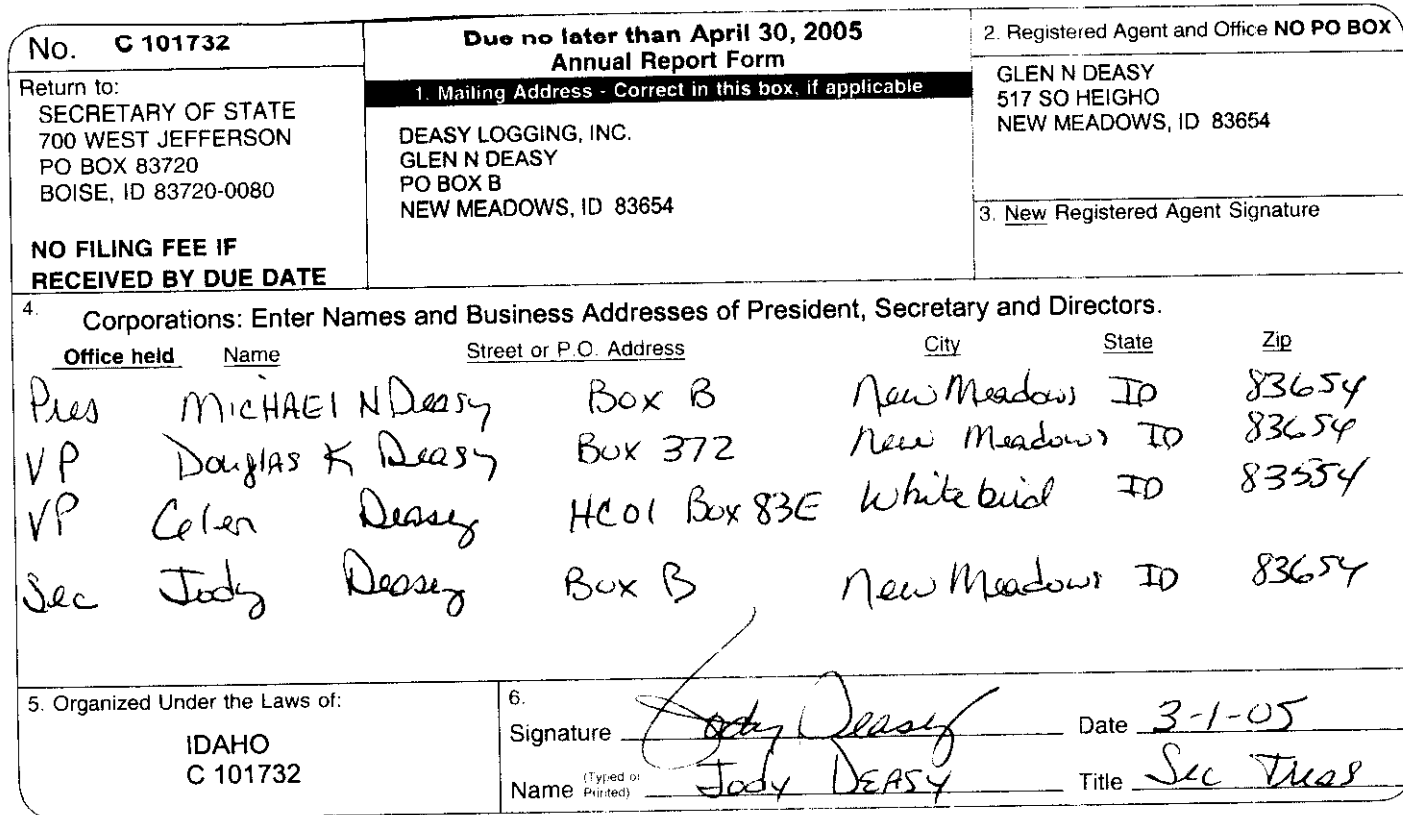 No. C 101732
Return to:
SECRETARY OF STATE
700 WEST JEFFERSON
PO BOX 83720
BOISE, ID 83720-0080
NO FILING FEE IF
RECEIVED BY DUE DATE
Due no later than April 30, 2005
Annual Report Form
1. Mailing Address - Correct in this box, if applicable
DEASY LOGGING, INC.
GLEN N DEASY
PO BOX B
NEW MEADOWS, ID 83654
2. Registered Agent and Office NO PO BOX
GLEN N DEASY
517 SO HEIGHO
NEW MEADOWS, ID 83654
3. New Registered Agent Signature
4. Corporations: Enter Names and Business Addresses of President, Secretary and Directors.
Office held Name Street or P.O. Address City State Zip
Pres MICHAEl N Deasy Box B New Meadows ID 83654
VP Douglas K Deasy Box 372 New Meadows ID 83654
VP Glen Deasy HC01 Box 83E Whitebird ID 83554
Sec Jody Deasy Box B New Meadows ID 83654
5. Organized Under the Laws of:
IDAHO
C 101732
6.
Signature Jody Deasy Date 3-1-05
Name (Typed or Printed) Jody DEASY Title Sec Treas